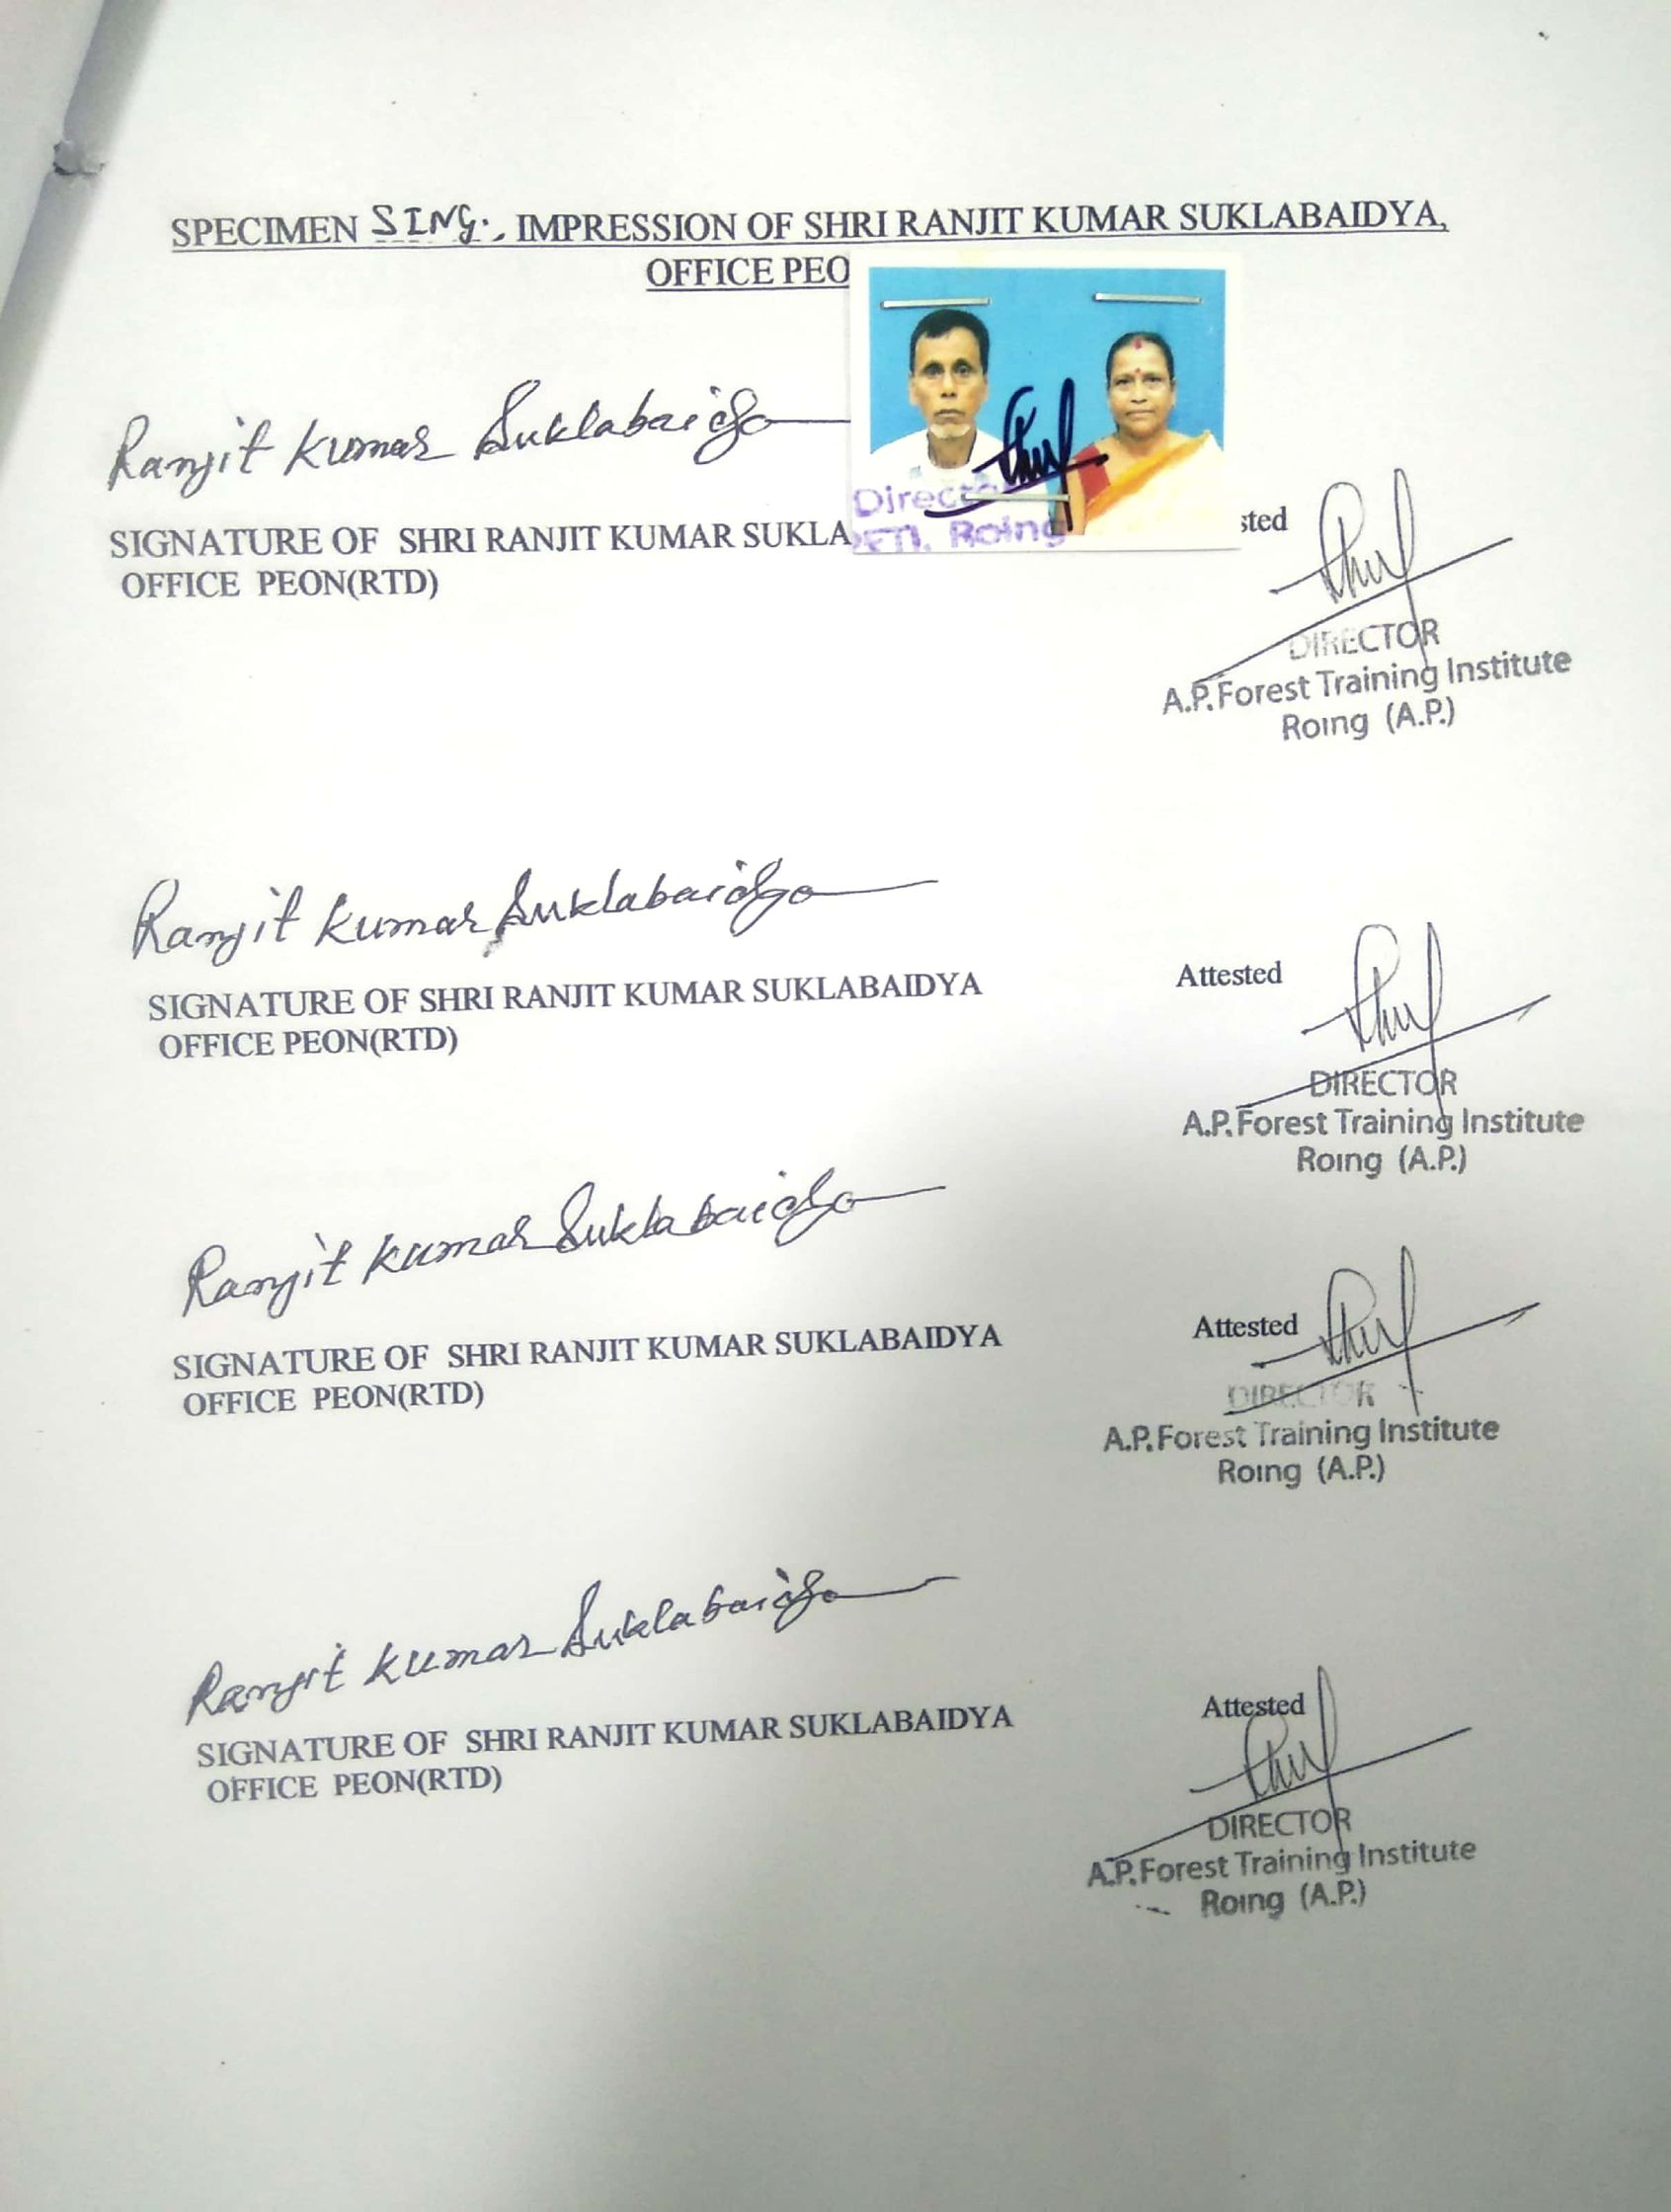 SPECIMEN SING., IMPRESSION OF SHRI RANJIT KUMAR SUKLABAIDYA,
OFFICE PEO
Ranjit Kumar Suklabaidya
Director
Roing
SIGNATURE OF SHRI RANJIT KUMAR SUKLA
OFFICE PEON(RTD)
sted
DIRECTOR
A.P. Forest Training Institute
Roing (A.P.)
Ranjit Kumar Suklabaidya
SIGNATURE OF SHRI RANJIT KUMAR SUKLABAIDYA
OFFICE PEON(RTD)
Attested
DIRECTOR
A.P. Forest Training Institute
Roing (A.P.)
Ranjit Kumar Suklabaidya
SIGNATURE OF SHRI RANJIT KUMAR SUKLABAIDYA
OFFICE PEON(RTD)
Attested
DIRECTOR
A.P. Forest Training Institute
Roing (A.P.)
Ranjit Kumar Suklabaidya
SIGNATURE OF SHRI RANJIT KUMAR SUKLABAIDYA
OFFICE PEON(RTD)
Attested
DIRECTOR
A.P. Forest Training Institute
Roing (A.P.)